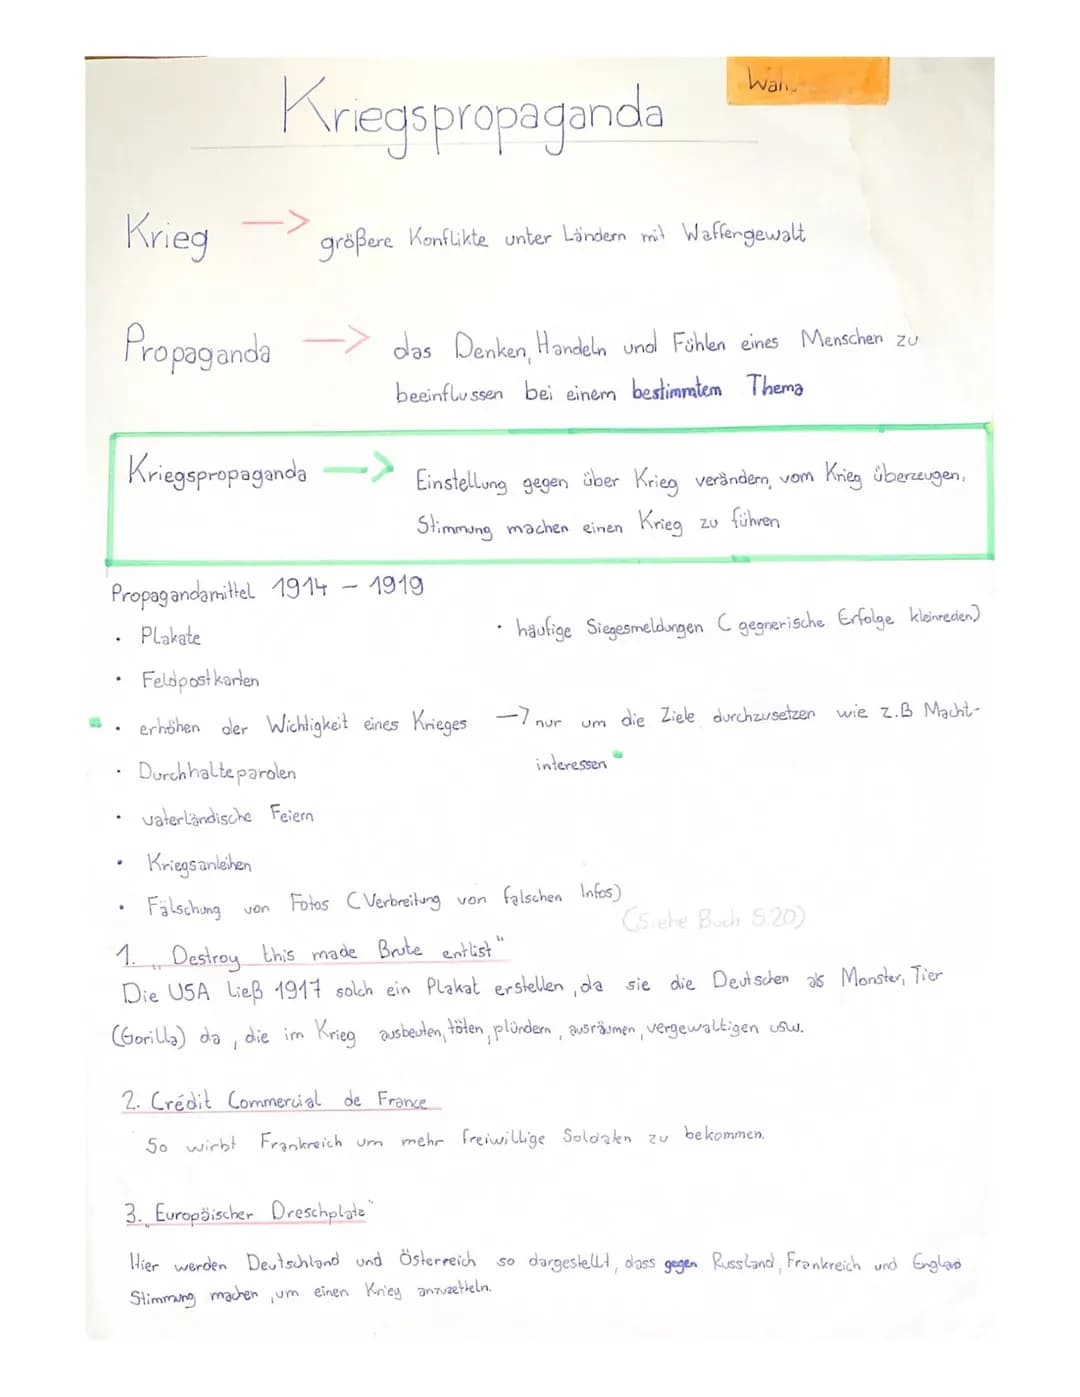 Kriegspropaganda
Krieg —> größere Konflikte unter Ländern mit Waffengewalt
Propaganda —> das Denken, Handeln und Fühlen eines Menschen zu
beeinflussen bei einem bestimmtem Thema
Kriegspropaganda —> Einstellung gegen über Krieg verändern, vom Krieg überzeugen,
Stimmung machen einen Krieg zu führen
Propagandamittel 1914 - 1919
• Plakate
• häufige Siegesmeldungen (gegnerische Erfolge kleinreden)
• Feldpostkarten
• erhöhen der Wichtigkeit eines Krieges —> nur um die Ziele durchzusetzen wie z.B Macht-
interessen
• Durchhalteparolen
• vaterländische Feiern
• Kriegsanleihen
• Fälschung von Fotos (Verbreitung von falschen Infos)
(Siehe Buch S.20)
1. „Destroy this made Brute entlist"
Die USA ließ 1917 solch ein Plakat erstellen, da sie die Deutschen als Monster, Tier
(Gorilla) da, die im Krieg ausbeuten, töten, plündern, ausräumen, vergewaltigen usw.
2. Crédit Commercial de France
So wirbt Frankreich um mehr freiwillige Soldaten zu bekommen.
3. „Europäischer Dreschplate"
Hier werden Deutschland und Österreich so dargestellt, dass gegen Russland, Frankreich und England
Stimmung machen, um einen Krieg anzuzetteln.